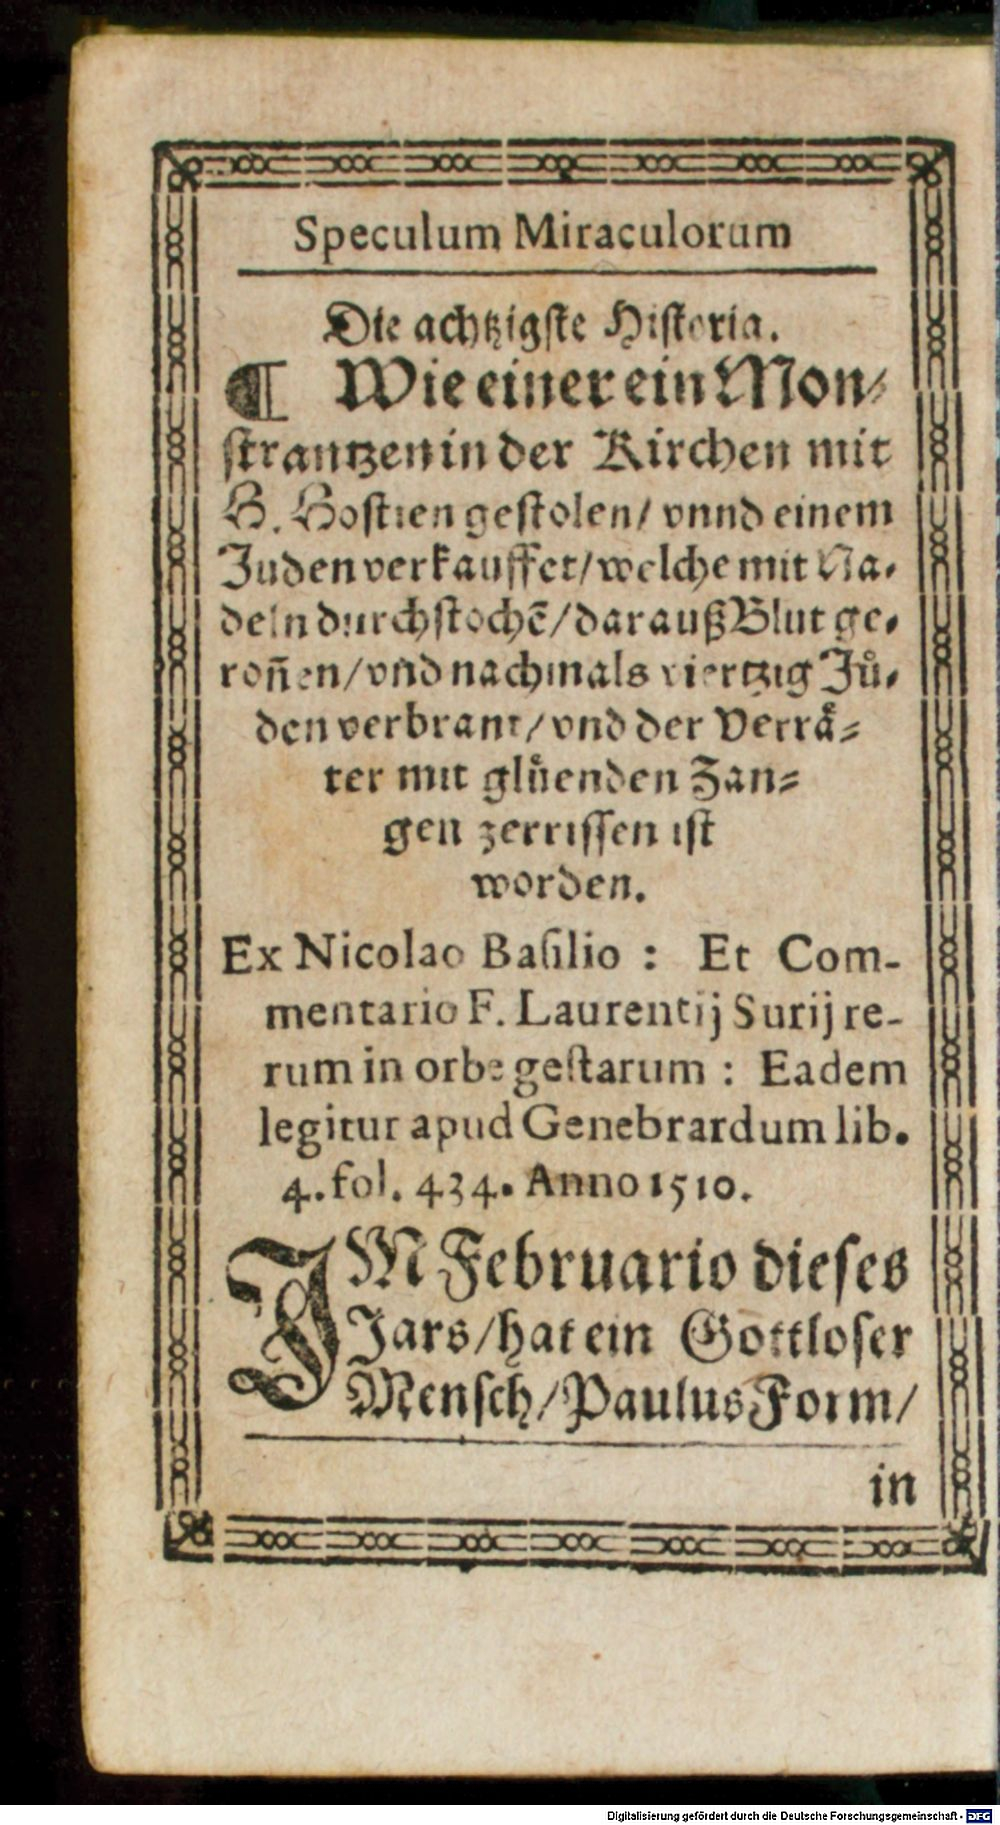 Speculum Miraculorum
Die achtzigste Historia.
¶ Wie einer ein Mon⸗
strantzen in der Kirchen mit
H. Hostien gestolen/ vnnd einem
Juden verkauffet/ welche mit Na⸗
deln durchstochē/ darauß Blut ge⸗
roñen/ vnd nachmals viertzig Juͤ⸗
den verbrant/ vnd der Verraͤ⸗
ter mit gluͤenden Zan⸗
gen zerrissen ist
worden.
Ex Nicolao Basilio : Et Com-
mentario F. Laurentij Surij re-
rum in orbe gestarum : Eadem
legitur apud Genebrardum lib.
4. fol. 434. Anno 1510.
IM Februario dieses
Jars/ hat ein Gottloser
Mensch/ Paulus Form/
in
Digitalisierung gefördert durch die Deutsche Forschungsgemeinschaft - DFG